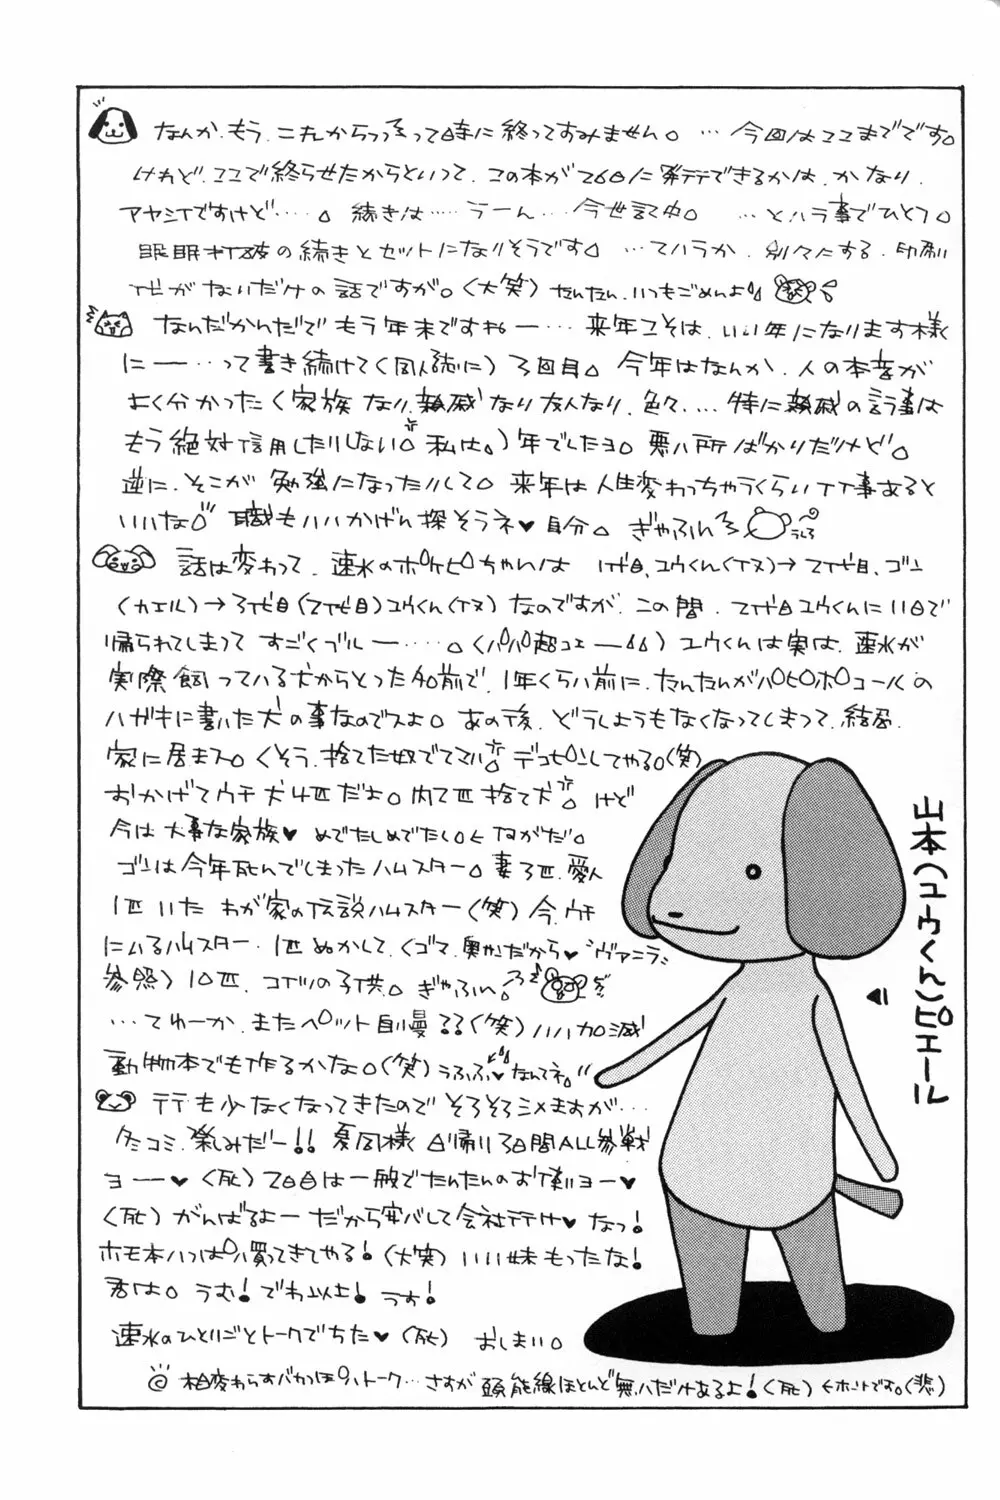 なんか、もう、これからっっって時に終ってすみません。…今回はここまでです。
けれど、ここで終らせたからといって、この本が26日に発行できるかは、かなり、
アヤシイですけど……。続きは……うーん…今世記中。…というハ事でひとつ。
眠眠打破の続きとセットになりそうです。…てハうか、別々にする、印刷
代がないだけの話ですが。(大笑)たんたん、いつもごめんよ
なんだかんだでもう年末ですねー…。来年こそは、いい年になります様
にー…って書き続けて(同人誌に)3回目。今年はなんか、人の本音が
よく分かった(家族なり、親戚なり友人なり、色々…特に親戚の言う事は
もう絶対信用したりしない。私は。)年でしたヨ。悪い所ばかりだけど。
逆に、そこが勉強になったりして。来年は人生変わっちゃうくらいイイ事あると
いいな。職もいいかげん探そうネ♥自分。ぎゃふん
話は変わって、速水のポケピ○ちゃんは1代目、ユウくん(イヌ)→2代目、ゴン
(カエル)→3代目(2代目)ユウくん(イヌ)なのですが、この間、2代目ユウくんに11日で
帰られてしまってすごくブルー……。(パパ超コエー)ユウくんは実は、速水が
実際飼っている犬からとった名前で、1年くらい前に、たんたんがパピポコールの
ハガキに書いた犬の事なのですよ。あの後、どうしようもなくなってしまって、結局
家に居ます。(くそう、捨てた奴でてこい。デコピンしてやる。(笑)
おかげでウチ犬4匹だよ。内2匹捨て犬。けど
今は大事な家族♥めでたしめでたし。←ながだ。
ゴンは今年死んでしまったハムスター。妻3匹、愛人
1匹いたわが家の伝説ハムスター(笑)今、ウチ
にいるハムスター、1匹ぬかして、(ゴマ、奥かだから♥"ヴァニラ"
参照)10匹、コイツの子供。ぎゃふん。
…てゆーか、またペット自慢??(笑)いい加減
動物本でも作るかな。(笑)うふふ♥なんてネ。
行も少なくなってきたのでそろそろシメますが…
冬コミ、楽しみだー!!夏同様日帰り3日間ALL参戦
ヨー♥(死)2日目は一般でたんたんのお供ヨー♥
(死)がんばるよーだから実バして会社行け♥なっ!
ホモ本いっぱい買ってきてやる!(大笑)いい妹もったな!
君は。うむ!でわ以上!うす!
速水のひとりごとトークでちた♥(死)おしまい。
◎相変わらずバカっぽいトーク…さすが頭脳線ほとんど無いだけあるよ!(死)←ホントです。(悲)
山本(ユウくん)ピエール